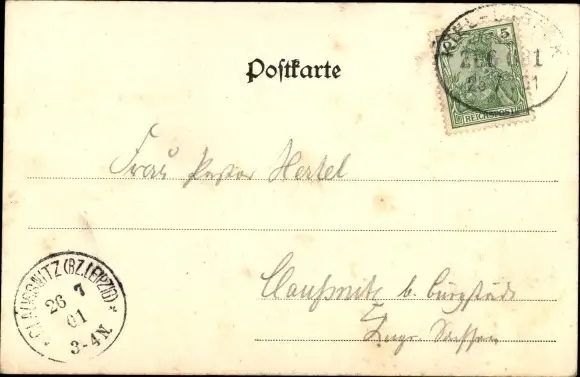 Postkarte
5
REICHSPOST
ZUG
Frau Pastor Hertel
Claußnitz b. Burgstädt
Kngr. Sachsen
CLAUSSNITZ (BZ. LEIPZIG)
26 7
01
3-4N.